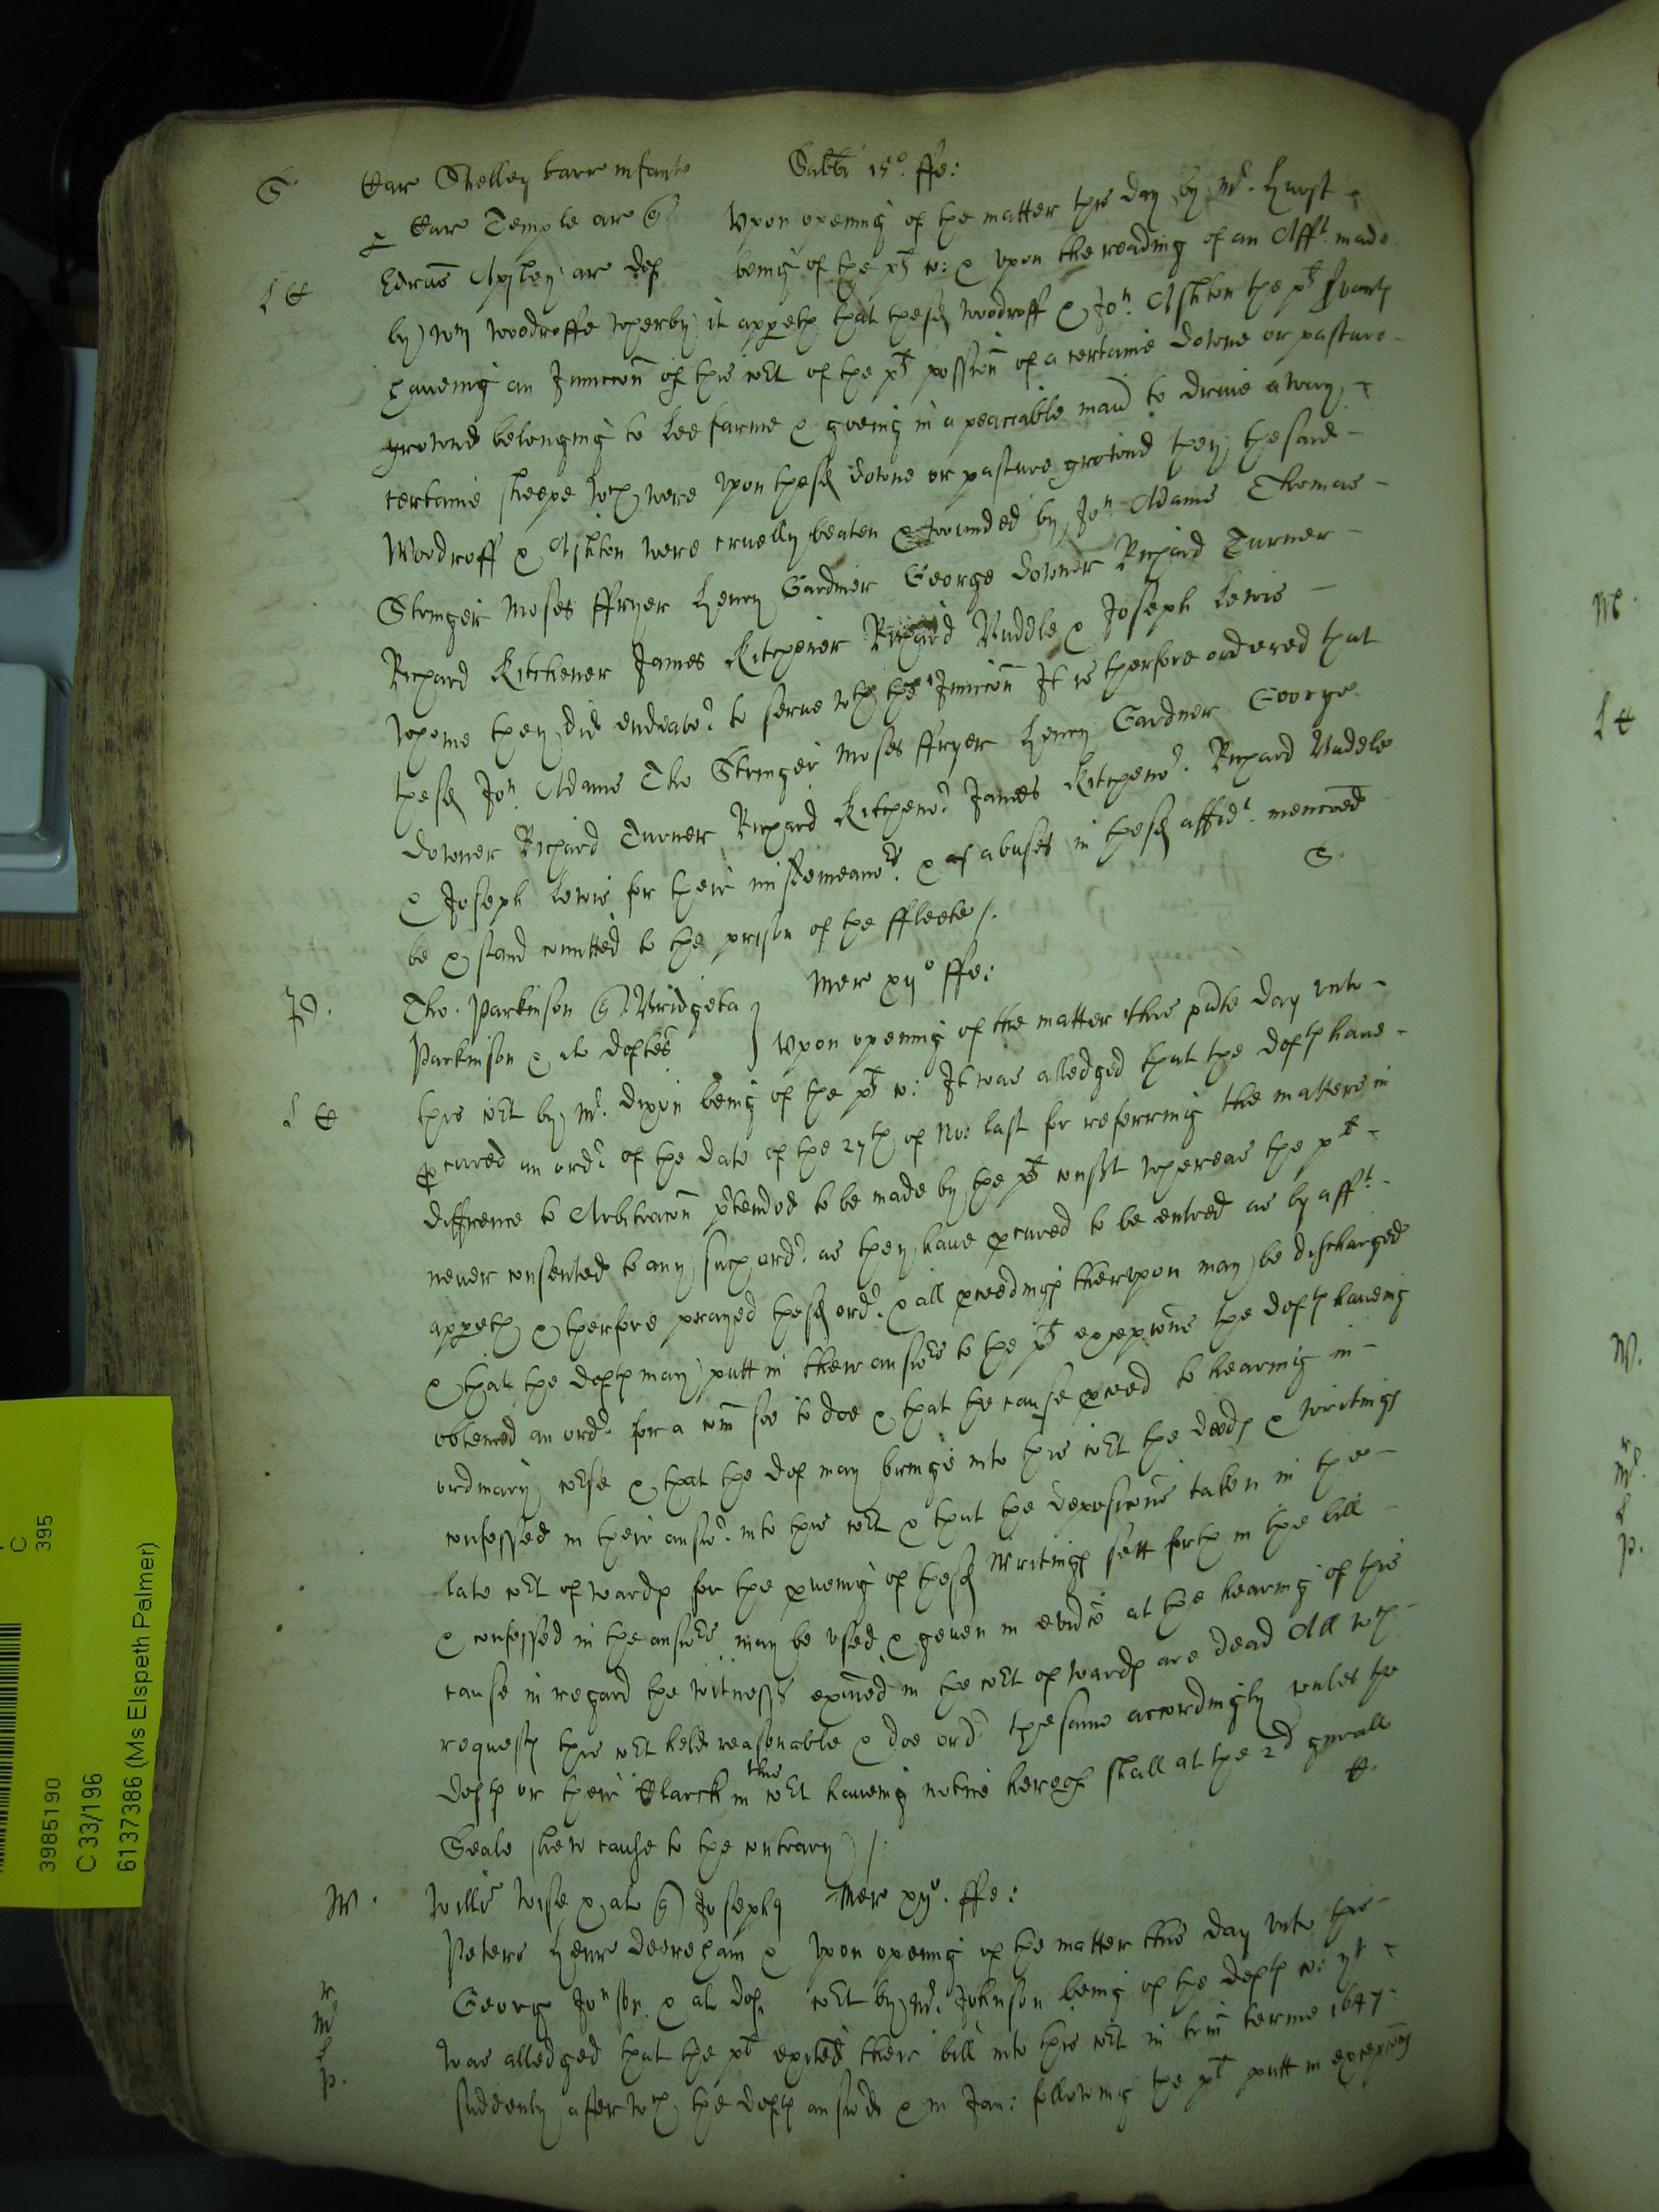 S Car Shelley barr infante Sabbi 15o. ffe:
& Car Temple ar Upon opening of the matter this day by Mr. Hurst
Edrus Apsley ar def being of the plt co: & upon the reading of an Afft. made
by Wm Woodroffe wherby it appeth that thesd Woodroff & Jon. Ashton the plt servants
haveing an Inniccon of this cort of the plt possion of a certaine downe or pasture
ground belonging to Lee farme & goeing in a peaceable manr to drive away
certaine sheepe wch were upon thesd downe or pasture ground they thesaid
Woodroff & Ashton were cruelly beaten & wounded by Jon Adams Thomas
Stringer Moses ffryer Henry Gardner George Downer Richard Turner
Richard Kitchener James Kitchener Richard Nuddle & Joseph Lewis
whome they did endeavor to serve wth the Inniccon It is therfore ordered that
thesd Jon Adams Tho Stringer Moses ffryer Henry Gardner George
Downer Richard Turner Richard Kitchener James Kitchener. Richard Nuddle
& Joseph Lewis for their misdemeanors & abuses in thesd affidt. menconed
S.
be & stand comitted to the prison of the ffleete /.
Tho. Parkinson Bridgeta Mer xijo ffe:
Parkinson & als deftes Upon opening of the matter this pnte day unto
this cort by Mr. Dixon being of the plt co: It was alledged that the defts have
pcured an ordr of the date of the 27th of No: last for referring the matters in
difference to Arbitracon ptended to be made by the plt consent whereas the plt
never consented to any such ordr. as they have pcured to be entred as by afft.
appeth & therfore prayed thesd ordr. & all pceedings therupon may be discharged
& that the defts may putt in their answers to the plt excepcons the defts haveing
obteined an ordr for a com soe to doe & that the cause pceed to hearing in
ordinary corse & that the def may bringe into this cort the deeds & writings
confessed in their answr. into this cort & that the deposicons taken in the
late cort of wards for the proveing of thesd writings sett forth in the bill
& confessed in the answers may be used & geven in evidce at the hearing of this
cause in regard the witnesses exained in the cort of wards are dead All wch
requests this cort held reasonable & doe ordr the same accordingly unles the
defts or their Clarck in this cort haveing notice hereof shall at the 2d gnrall
Seale shew cause to the contrary /.
W. Willus Wise & als Josephus Mer xijo. ffe:
Peters Henr Deereham & Upon opening of the matter this day unto this
George Jonson & als def cort by Mr. Johnson being of the defts co: yt
was alledged that the plt exited their bill into this cort in trin terme 1647
suddenly after wch the defts answd & in Jan: following the plt putt in excepcons
3985190
C 33/196
6137386 (Ms Elspeth Palmer)
C
395